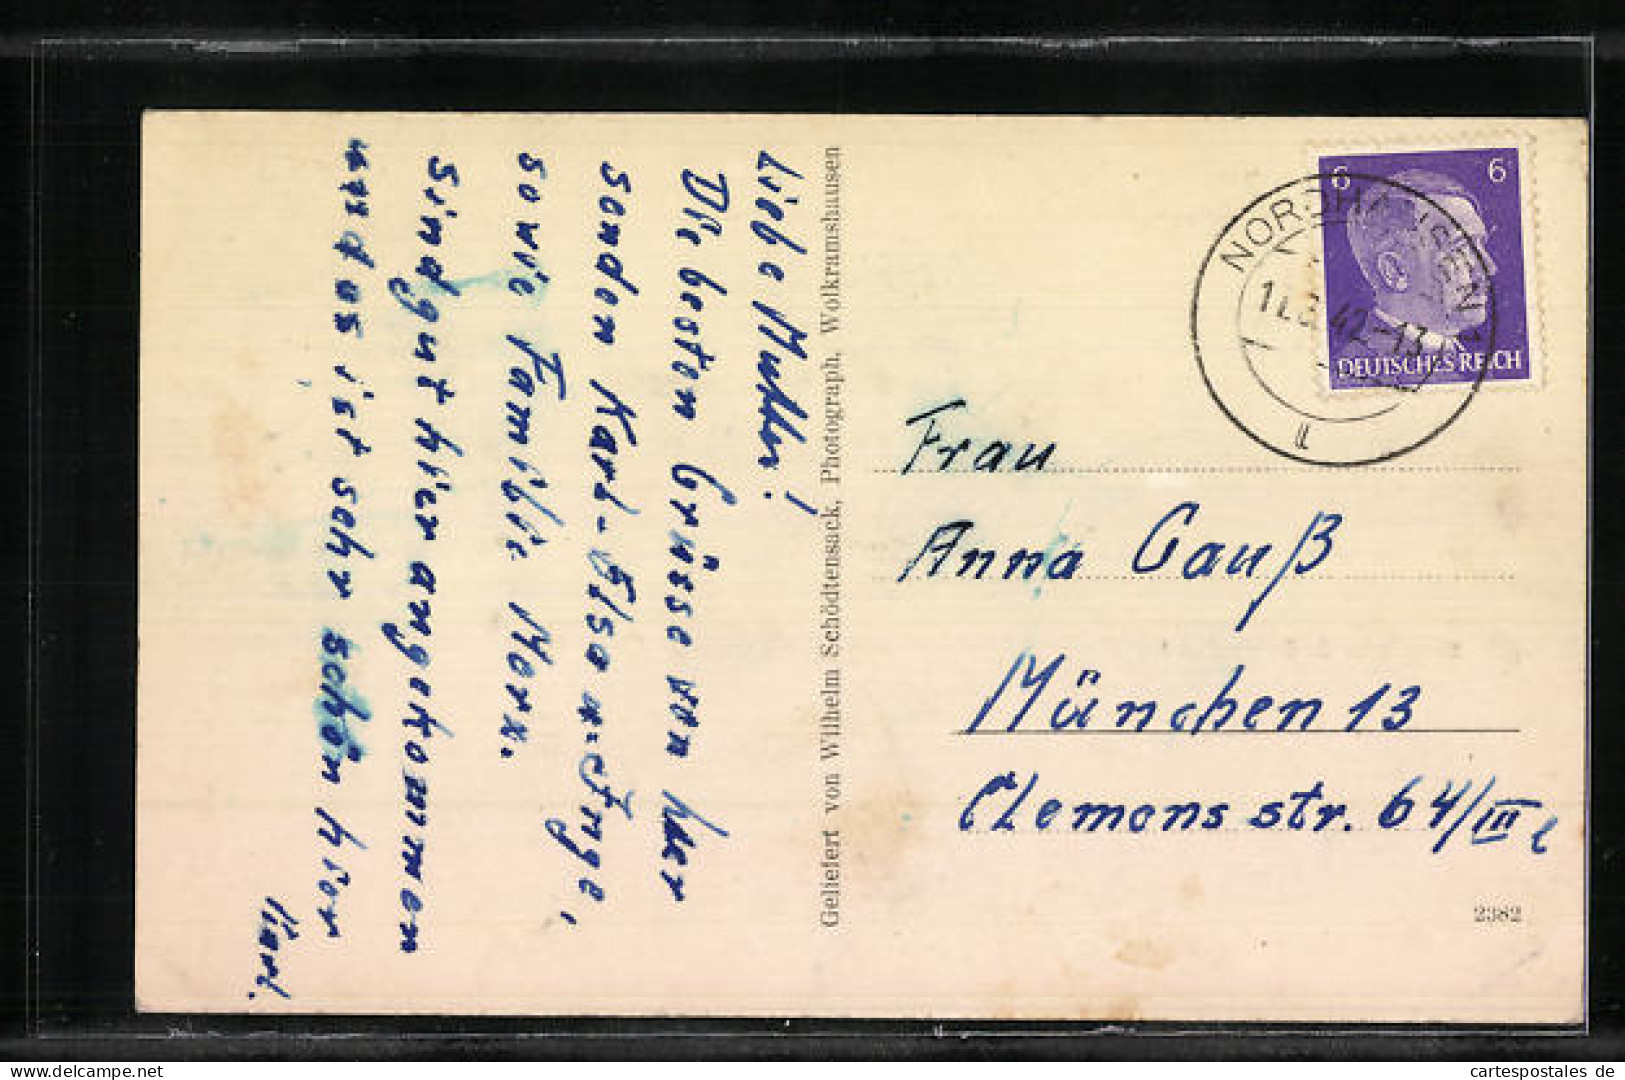 Liebe Mutter!
Die besten Grüsse von hier
senden Karl-Elsa u. Inge,
sowie Familie Merx.
Sind gut hier angekommen
und es ist sehr schön hier
Karl.
Geliefert von Wilhelm Schödtensack, Photograph, Wolkramshausen
6 6
DEUTSCHES REICH
NORDHAUSEN
42.-13
Frau
Anna Gauß
München 13
Clemensstr. 64/III
2382
cartespostales de